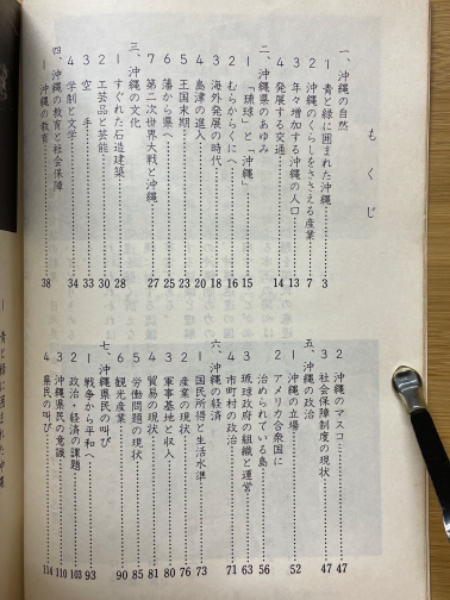 もくじ
一、沖縄の自然
1 青と緑に囲まれた沖縄……3
2 沖縄のくらしをささえる産業……7
3 年々増加する沖縄の人口……13
4 発展する交通……14
二、沖縄県のあゆみ
1 「琉球」と「沖縄」……15
2 むらからくにへ……16
3 海外発展の時代……18
4 島津の進入……20
5 王国末期……23
6 藩から県へ……25
7 第二次世界大戦と沖縄……27
三、沖縄の文化
1 すぐれた石造建築……28
2 工芸品と芸能……30
3 空手……33
4 学制と文学……34
四、沖縄の教育と社会保障
1 沖縄の教育……38
2 沖縄のマスコミ……47
3 社会保障制度の現状……47
五、沖縄の政治
1 沖縄の立場……52
2 アメリカ合衆国に
治められている島……56
3 琉球政府の組織と運営……63
4 市町村の政治……71
六、沖縄の経済
1 国民所得と生活水準……73
2 産業の現状……76
3 軍事基地と収入……80
4 貿易の現状……81
5 労働問題の現状……85
6 観光産業……90
七、沖縄県民の叫び
1 戦争から平和へ……93
2 政治・経済の課題……103
3 沖縄県民の意識……110
4 県民の叫び……114
1 青と緑に囲まれた沖縄